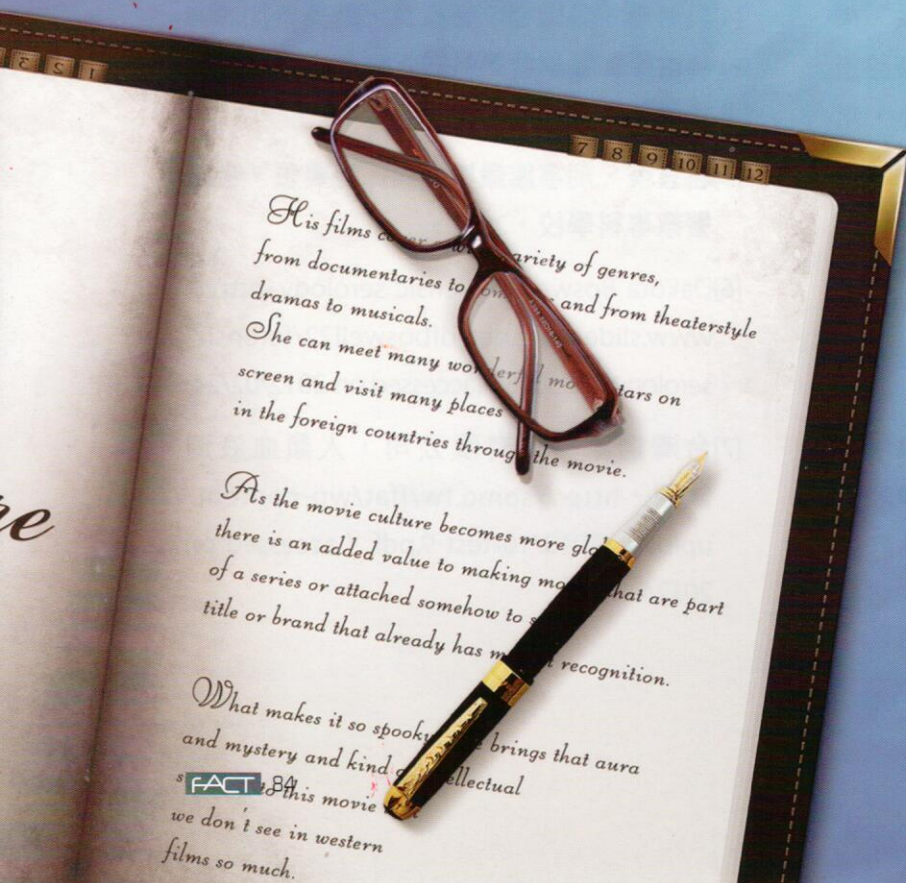 1 2 3
7 8 9 10 11 12
His films cover a variety of genres,
from documentaries to and from theaterstyle
dramas to musicals.
She can meet many wonderful tars on
screen and visit many places
in the foreign countries through the movie.
re
As the movie culture becomes more glo
there is an added value to making mo that are part
of a series or attached somehow to
title or brand that already has recognition.
What makes it so spooky brings that aura
and mystery and kind ellectual
to this movie
FACT 84
we don't see in western
films so much.